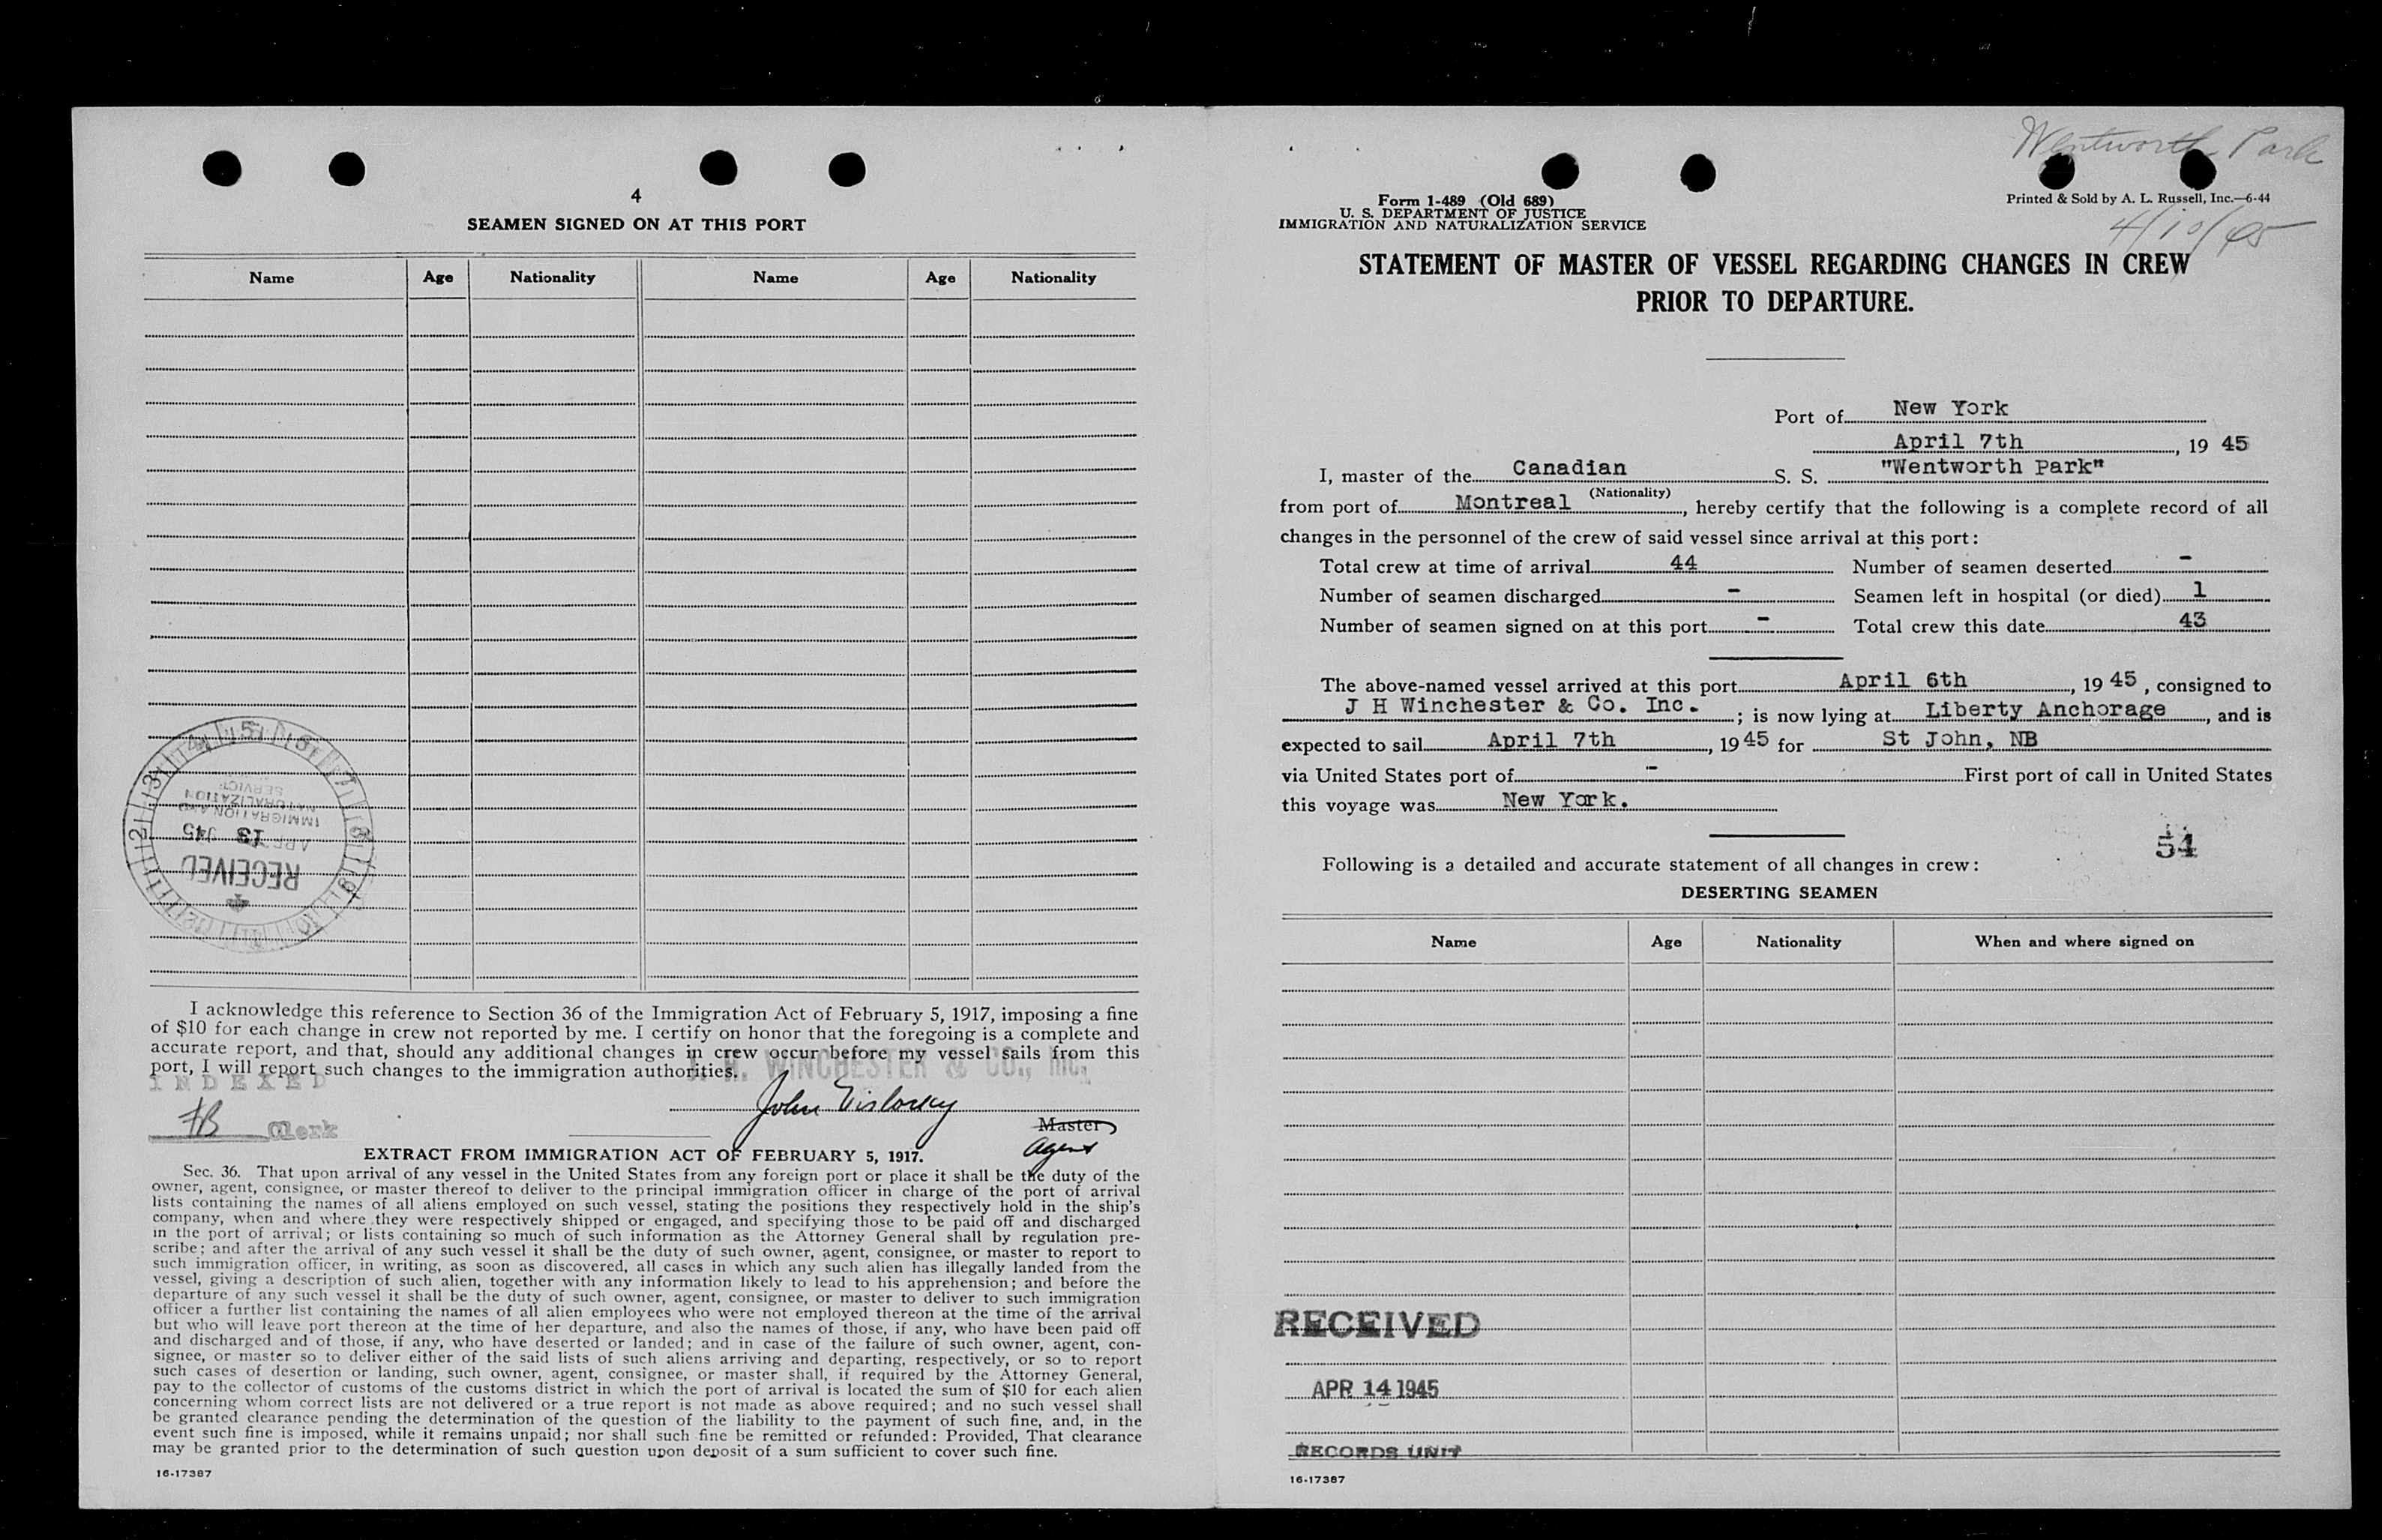 4
SEAMEN SIGNED ON AT THIS PORT
Name Age Nationality Name Age Nationality
RECEIVED
13
IMMIGRATION AND
NATURALIZATION
I acknowledge this reference to Section 36 of the Immigration Act of February 5, 1917, imposing a fine
of $10 for each change in crew not reported by me. I certify on honor that the foregoing is a complete and
accurate report, and that, should any additional changes in crew occur before my vessel sails from this
port, I will report such changes to the immigration authorities.
J. H. WINCHESTER & CO., Inc.
INDEXED
Clerk
John
Master
Agent
EXTRACT FROM IMMIGRATION ACT OF FEBRUARY 5, 1917.
Sec. 36. That upon arrival of any vessel in the United States from any foreign port or place it shall be the duty of the
owner, agent, consignee, or master thereof to deliver to the principal immigration officer in charge of the port of arrival
lists containing the names of all aliens employed on such vessel, stating the positions they respectively hold in the ship's
company, when and where they were respectively shipped or engaged, and specifying those to be paid off and discharged
in the port of arrival; or lists containing so much of such information as the Attorney General shall by regulation pre-
scribe; and after the arrival of any such vessel it shall be the duty of such owner, agent, consignee, or master to report to
such immigration officer, in writing, as soon as discovered, all cases in which any such alien has illegally landed from the
vessel, giving a description of such alien, together with any information likely to lead to his apprehension; and before the
departure of any such vessel it shall be the duty of such owner, agent, consignee, or master to deliver to such immigration
officer a further list containing the names of all alien employees who were not employed thereon at the time of the arrival
but who will leave port thereon at the time of her departure, and also the names of those, if any, who have been paid off
and discharged and of those, if any, who have deserted or landed; and in case of the failure of such owner, agent, con-
signee, or master so to deliver either of the said lists of such aliens arriving and departing, respectively, or so to report
such cases of desertion or landing, such owner, agent, consignee, or master shall, if required by the Attorney General,
pay to the collector of customs of the customs district in which the port of arrival is located the sum of $10 for each alien
concerning whom correct lists are not delivered or a true report is not made as above required; and no such vessel shall
be granted clearance pending the determination of the question of the liability to the payment of such fine, and, in the
event such fine is imposed, while it remains unpaid; nor shall such fine be remitted or refunded: Provided, That clearance
may be granted prior to the determination of such question upon deposit of a sum sufficient to cover such fine.
16-17387
Wentworth Park
Form 1-489 (Old 689)
U. S. DEPARTMENT OF JUSTICE
IMMIGRATION AND NATURALIZATION SERVICE
Printed & Sold by A. L. Russell, Inc.—6-44
4/10/45
STATEMENT OF MASTER OF VESSEL REGARDING CHANGES IN CREW
PRIOR TO DEPARTURE.
Port of New York
April 7th, 19 45
I, master of the Canadian S. S. "Wentworth Park"
(Nationality)
from port of Montreal, hereby certify that the following is a complete record of all
changes in the personnel of the crew of said vessel since arrival at this port:
Total crew at time of arrival 44 Number of seamen deserted -
Number of seamen discharged - Seamen left in hospital (or died) 1
Number of seamen signed on at this port - Total crew this date 43
The above-named vessel arrived at this port April 6th, 19 45, consigned to
J H Winchester & Co. Inc. ; is now lying at Liberty Anchorage, and is
expected to sail April 7th, 19 45 for St John, NB
via United States port of - First port of call in United States
this voyage was New York.
54
Following is a detailed and accurate statement of all changes in crew:
DESERTING SEAMEN
Name Age Nationality When and where signed on
RECEIVED
APR 14 1945
RECORDS UNIT
16-17387